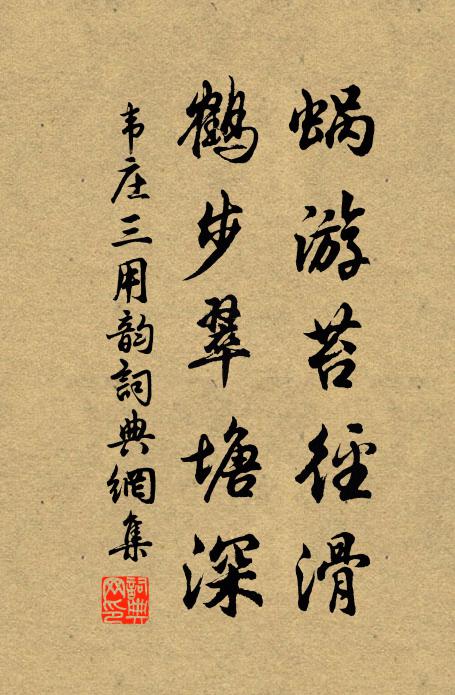 蜗游苔径滑
鹤步翠塘深
韦庄三用韵詞典網集
詞典網印